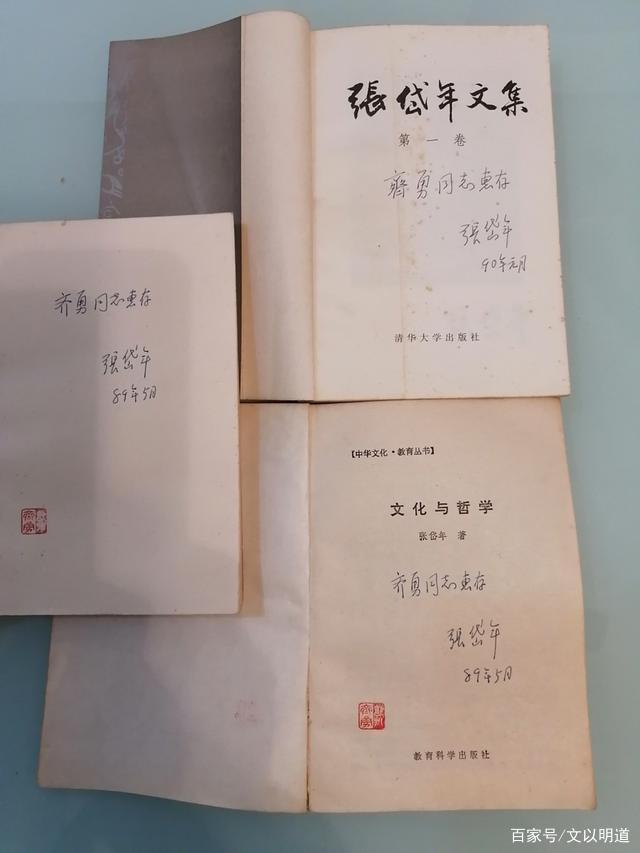 張岱年文集
第一卷
齊勇同志惠存
張岱年
90年元月
清华大学出版社
齐勇同志惠存
張岱年
89年5月
【中华文化·教育丛书】
文化与哲学
张岱年 著
齐勇同志惠存
張岱年
89年5月
教育科学出版社
百家号/文以明道